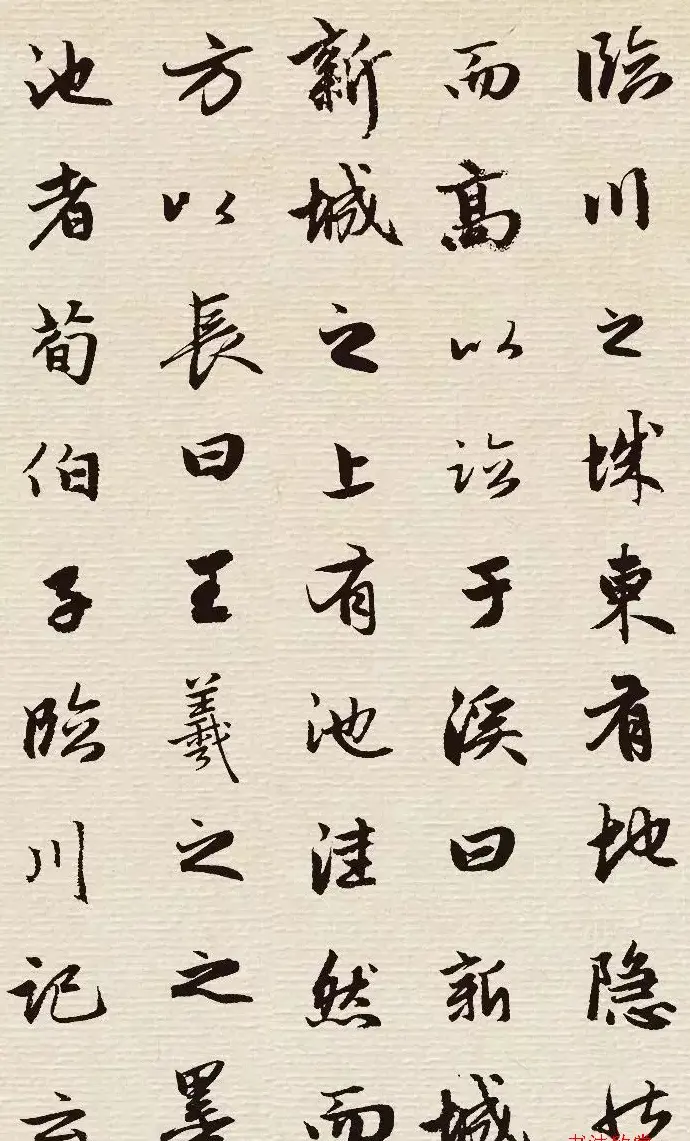 臨川之城東有地隐然
而高以臨于溪曰新城
新城之上有池洼然而
方以長曰王羲之之墨
池者荀伯子臨川記云